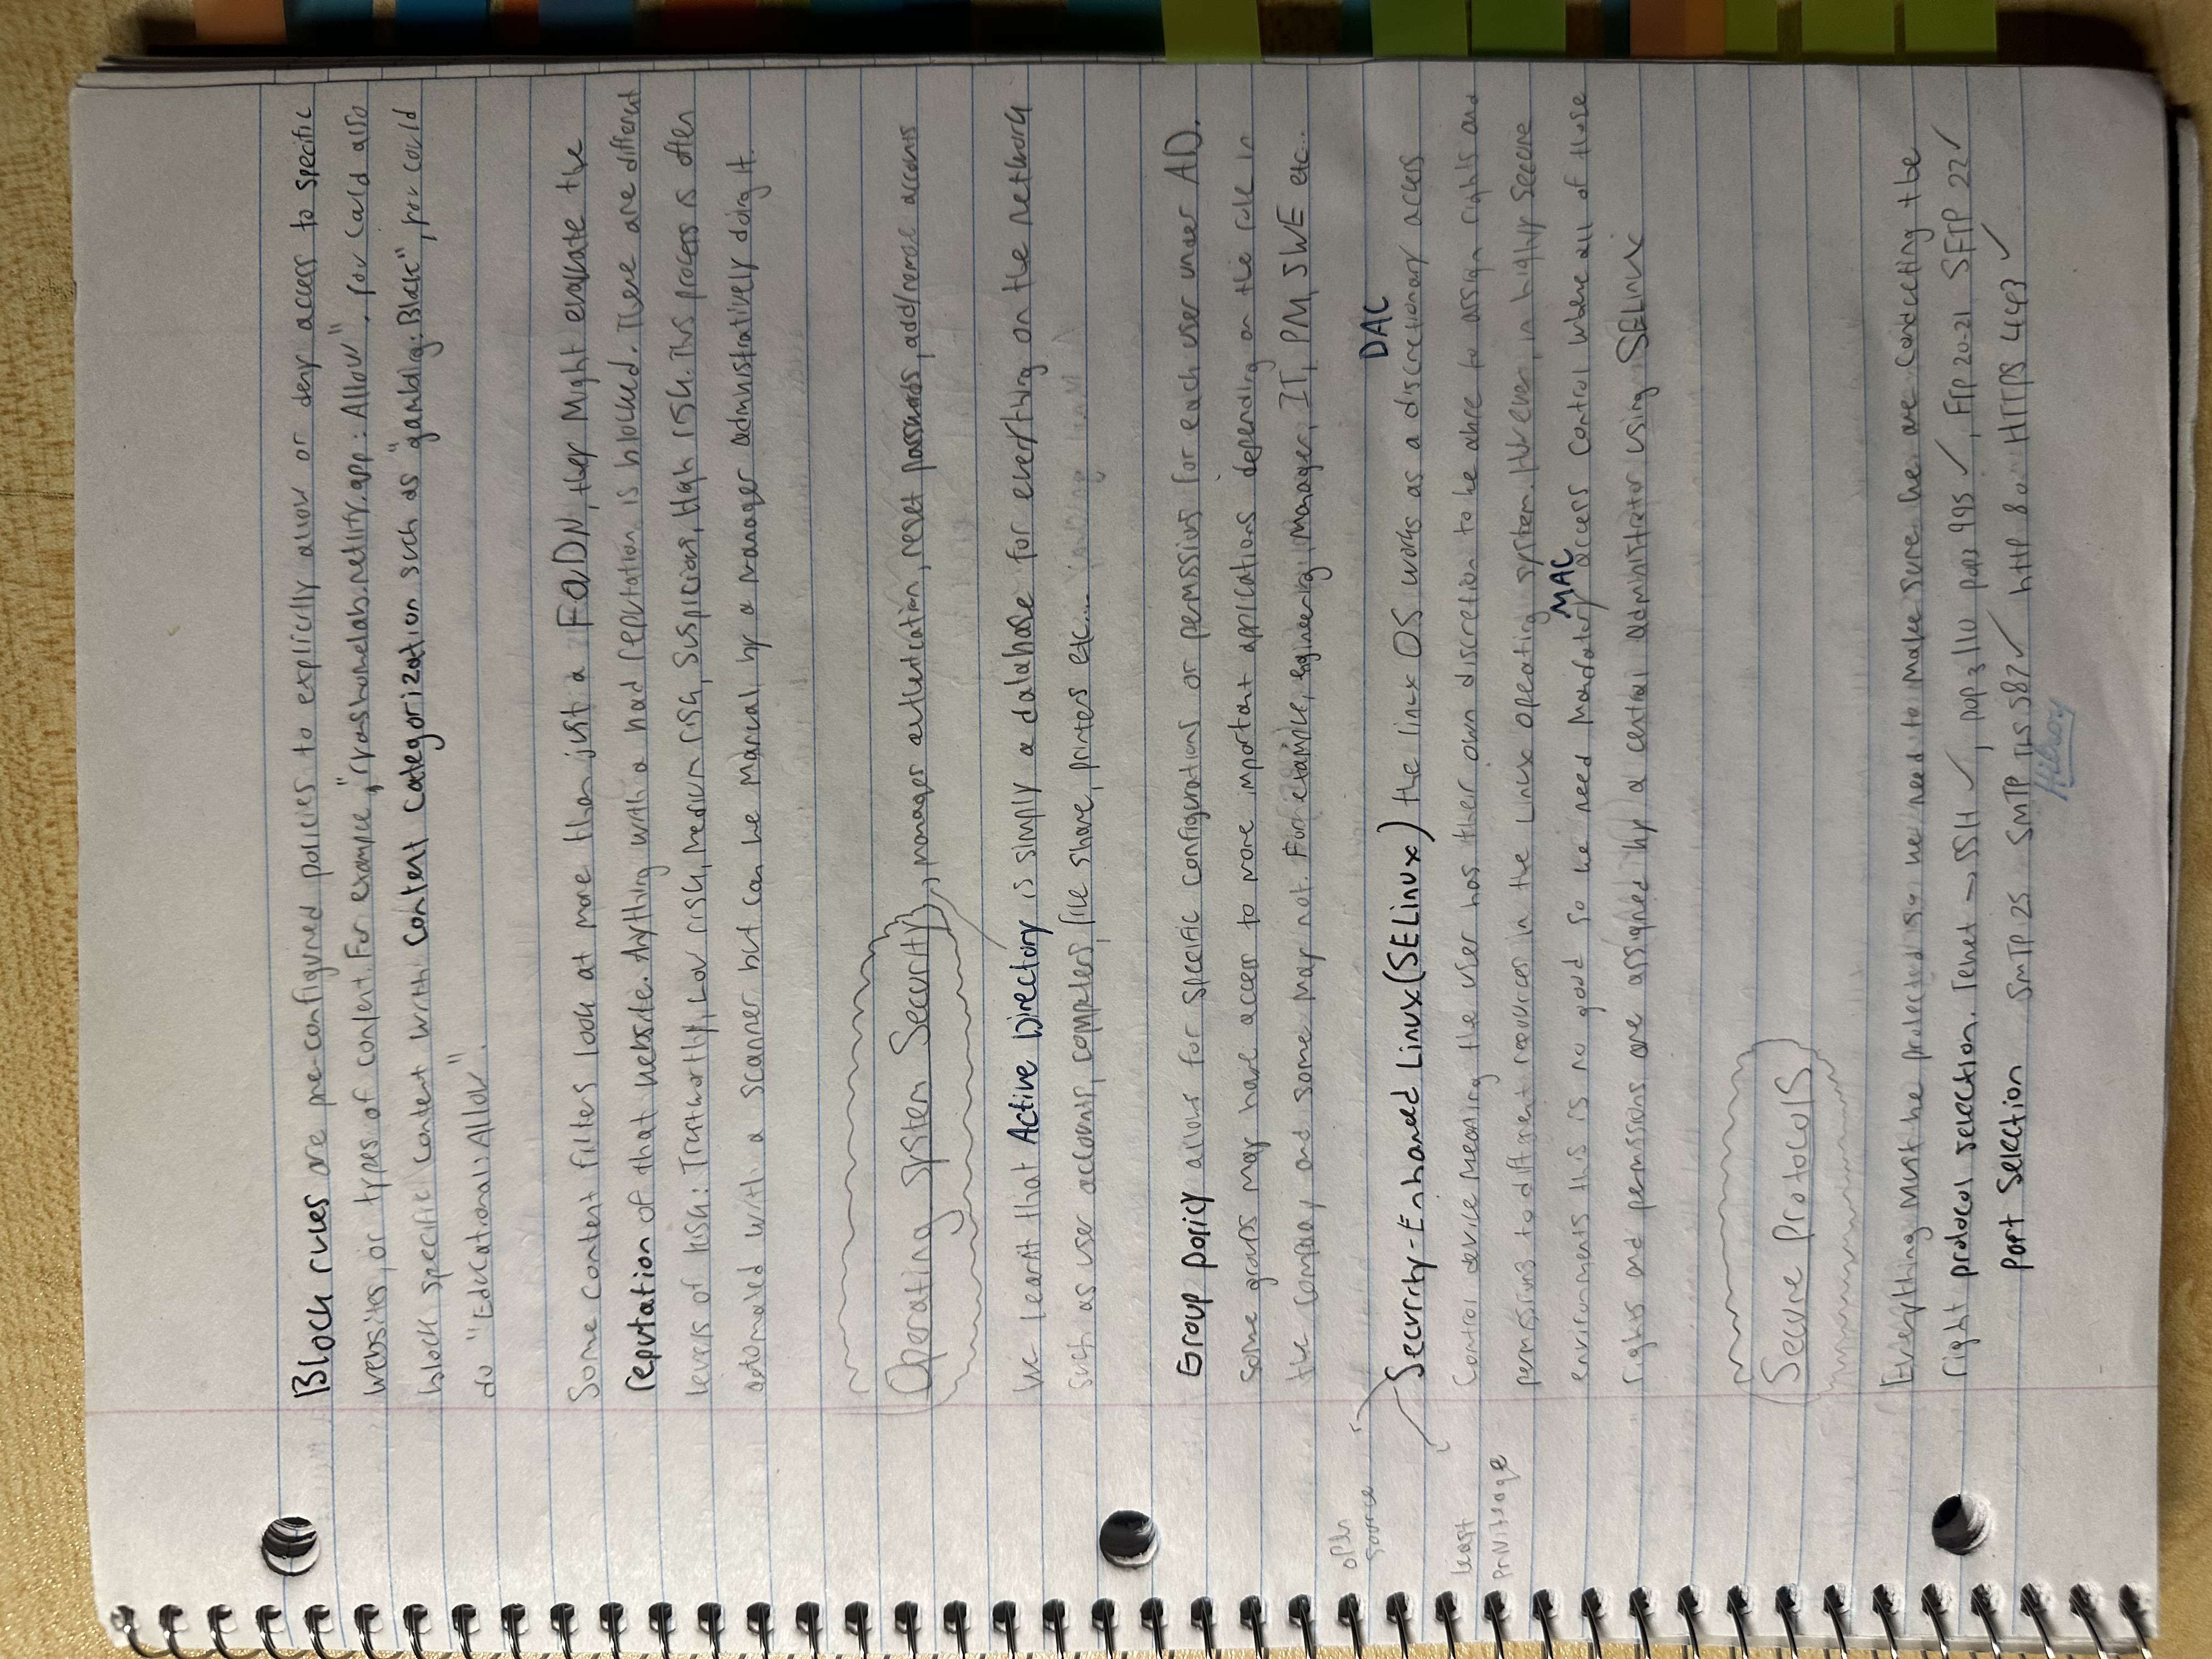 Block rules are pre-configured policies to explicitly allow or deny access to specific
websites, or types of content. For example, "ryanshomelab.netlify.app: Allow". you could also
block specific content with Content Categorization such as "gambling: Block", you could
do "Educational: Allow".
Some content filters look at more than just a FQDN, they might evaluate the
reputation of that website. Anything with a bad reputation is blocked. There are different
levels of risk: Trustworthy, Low risk, Medium risk, Suspicious, High risk. This process is often
automated with a scanner but can be manual by a manager administratively doing it.
Operating System Security, manager authentication, reset passwords, add/remove accounts
We learnt that Active Directory is simply a database for everything on the network
such as user accounts, computers, file share, printers etc...
Group policy allows for specific configurations or permissions for each user under AD.
Some groups may have access to more important applications depending on the role in
the company and some may not. For example, engineering, manager, IT, PM, SWE etc..
open
source
DAC
Security-Enhanced Linux (SELinux) the linux OS works as a discretionary access
least
control device meaning the user has their own discretion to be able to assign rights and
permissions to different resources in the Linux operating system. However, in highly secure
MAC
environments this is no good so we need Mandatory access control where all of those
rights and permissions are assigned by a central administrator using SELinux
Secure Protocols
Everything must be protected so we need to make sure we are conducting the
right protocol selection. Telnet → SSH ✓, pop3 110 pop3 995 ✓, FTP 20-21 SFTP 22 ✓
port selection SMTP 25 SMTP TLS 587 ✓ http 80 HTTPS 443 ✓
Hilroy